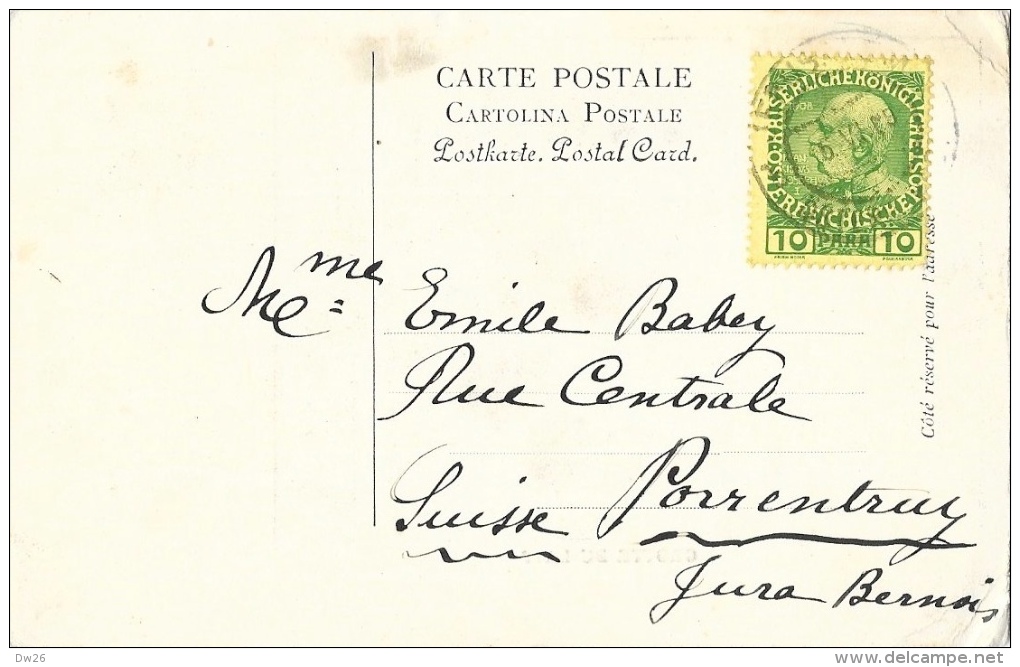 CARTE POSTALE
CARTOLINA POSTALE
Postkarte. Postal Card.
KAISERLICHE KÖNIGLICHE ÖSTERREICHISCHE POST
1908
10 PARA 10
Mme Emile Babey
Rue Centrale
Suisse Porrentruy
Jura Bernois
Côté réservé pour l'adresse
Dw26
delcampe.net